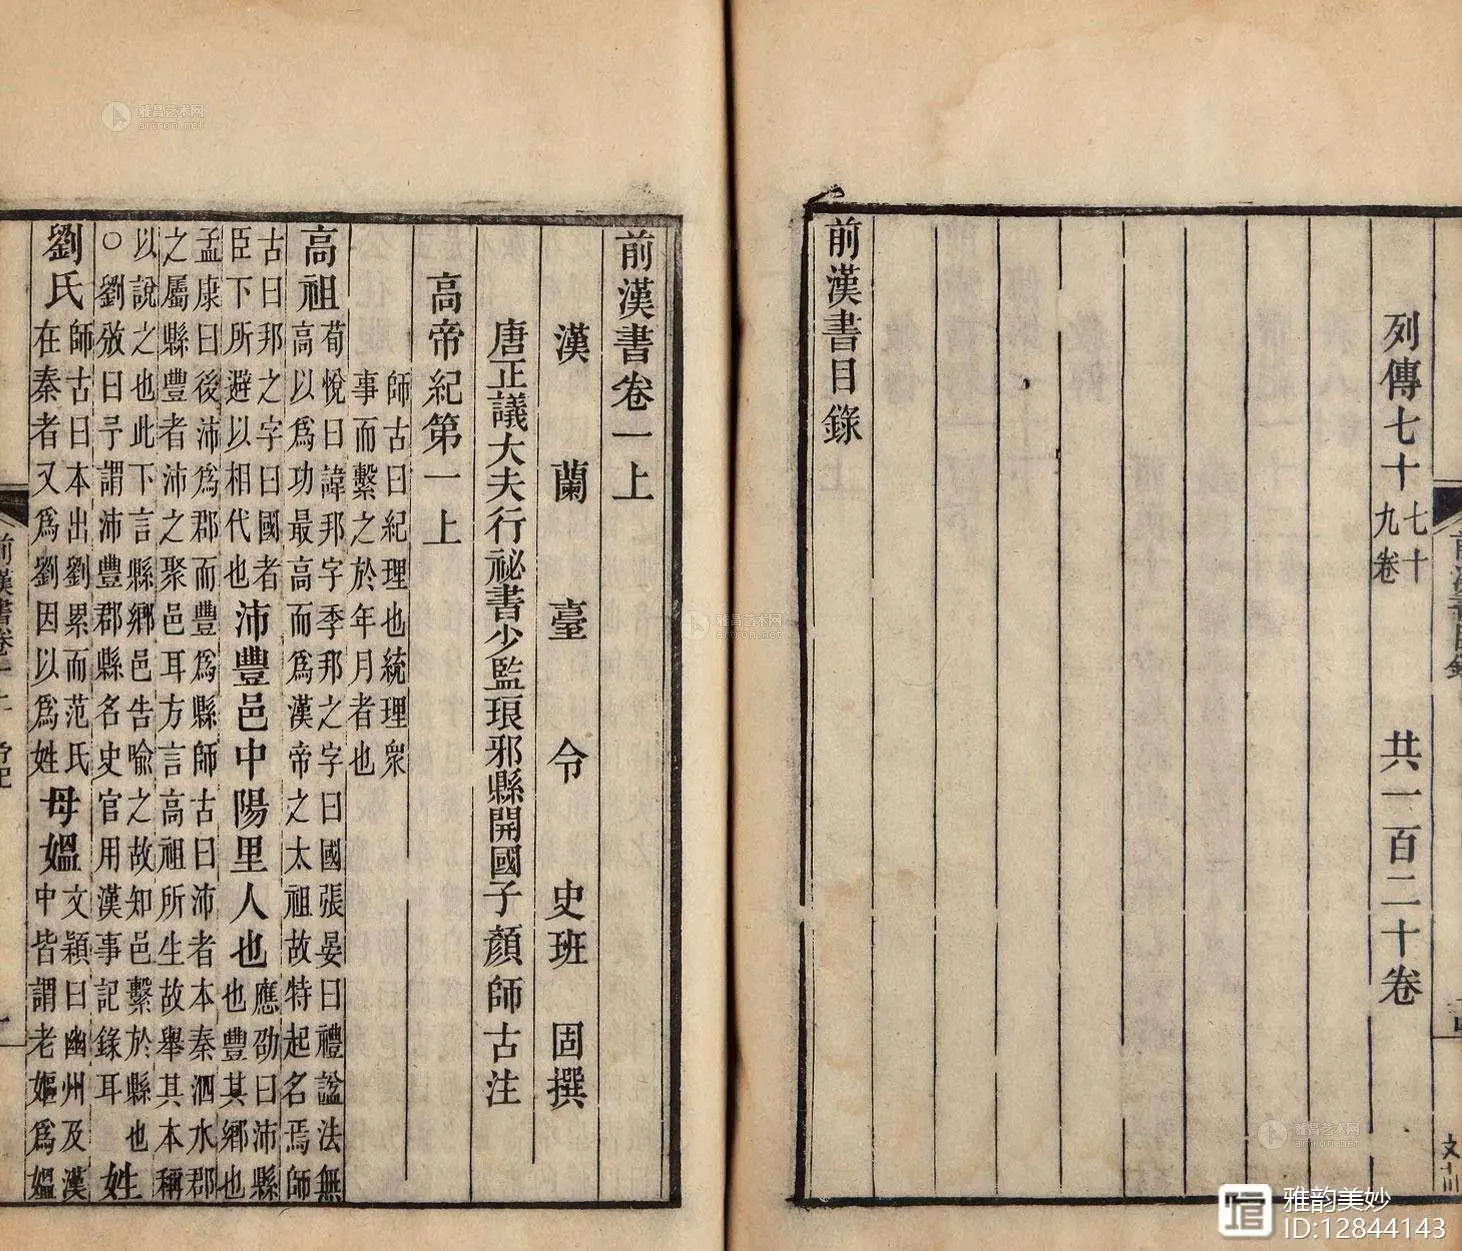 列傳七十七十九卷 共一百二十卷
前漢書目錄
前漢書卷一上
漢蘭臺令史班固撰
唐正議大夫行祕書少監琅邪縣開國子顏師古注
高帝紀第一上
師古曰紀理也統理衆
事而繫之於年月者也
高祖荀悅曰諱邦字季邦之字曰國張晏曰禮諡法無
高以爲功最高而爲漢帝之太祖故特起名焉師
古曰邦之字曰國者
臣下所避以相代也
沛豐邑中陽里人也
應劭曰沛縣
也豐其鄉也
孟康曰後沛爲郡而豐爲縣師古曰沛者本秦泗水郡
之屬縣豐者沛之聚邑耳方言高祖所生故舉其本稱
以說之也此下言縣鄉邑告喻之故知邑繫於縣也
○劉攽曰予謂沛豐郡縣名史官用漢事記錄耳
姓
劉氏
師古曰本出劉累而范氏
在秦者又爲劉因以爲姓
母媼
文穎曰幽州及漢
中皆謂老嫗爲媼
雅昌艺术网
artron.net
雅昌艺术网
artron.net
雅昌艺术网
artron.net
雅韵美妙
ID:12844143